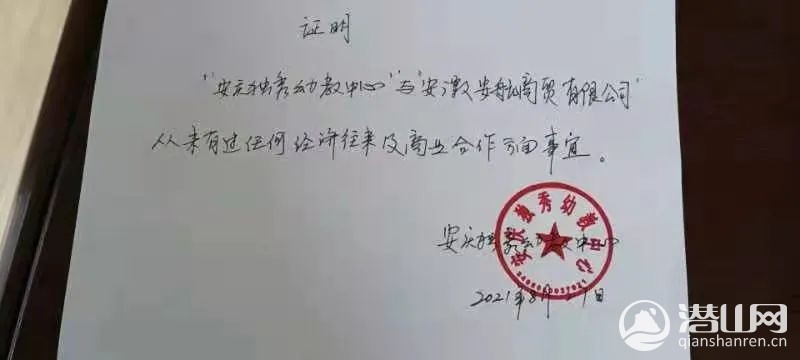 证明
“安庆独秀幼教中心”与“安徽安航商贸有限公司”
从未有过任何经济往来及商业合作方面事宜。
安庆独秀幼教中心
安庆独秀幼教中心
2021年8月27日
潜山网
qianshanren.cn